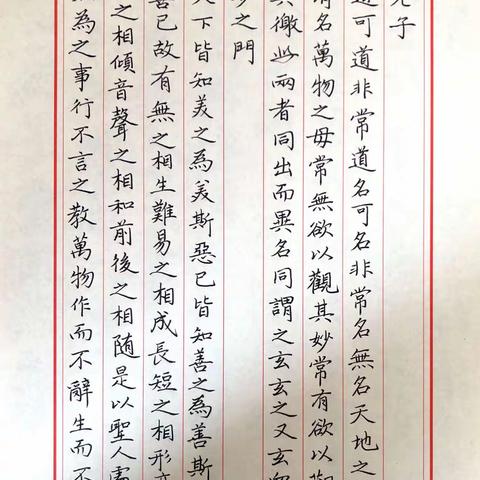 老子
道可道非常道名可名非常名無名天地之
有名萬物之母常無欲以觀其妙常有欲以觀
其徼此兩者同出而異名同謂之玄玄之又玄眾
妙之門
天下皆知美之為美斯惡已皆知善之為善斯
善已故有無之相生難易之相成長短之相形高
之相傾音聲之相和前後之相随是以聖人處
無為之事行不言之教萬物作而不辭生而不